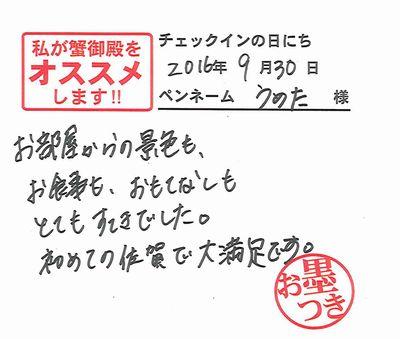 私が蟹御殿を
オススメ
します!!
チェックインの日にち
2016年 9月30日
ペンネーム うめた 様
お部屋からの景色も、
お食事も、おもてなしも
とてもすてきでした。
初めての佐賀で大満足です。
お墨つき